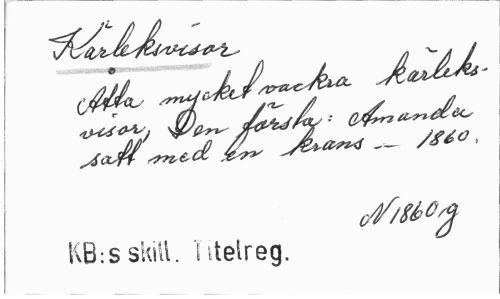 Kärleksvisor
Åtta mycket vackra kärleks-
visor, Den första: Amanda
satt med en krans — 1860.
N 1860 g
KB:s skill. Titelreg.